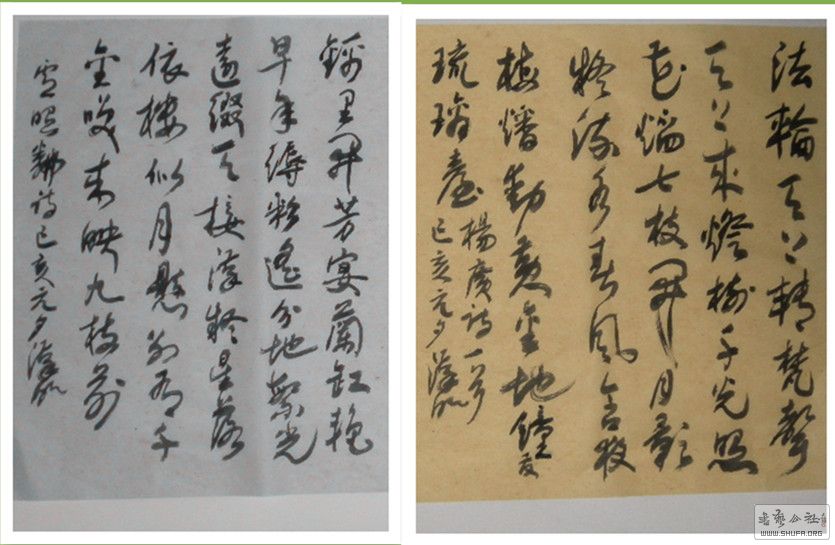 法輪天上轉梵聲
天上來燈樹千光照
花焰七枝開月影
疑流水春風含夜
梅燔動黃金地鐘發
琉璃臺
楊廣詩一首
己亥元夕漢
錦里開芳宴蘭缸艷
早年縟彩遙分地繁光
遠綴天接漢疑星落
依樓似月懸別有千
金笑來映九枝前
盧照鄰詩己亥元夕漢
書藝公社
WWW.SHUFA.ORG